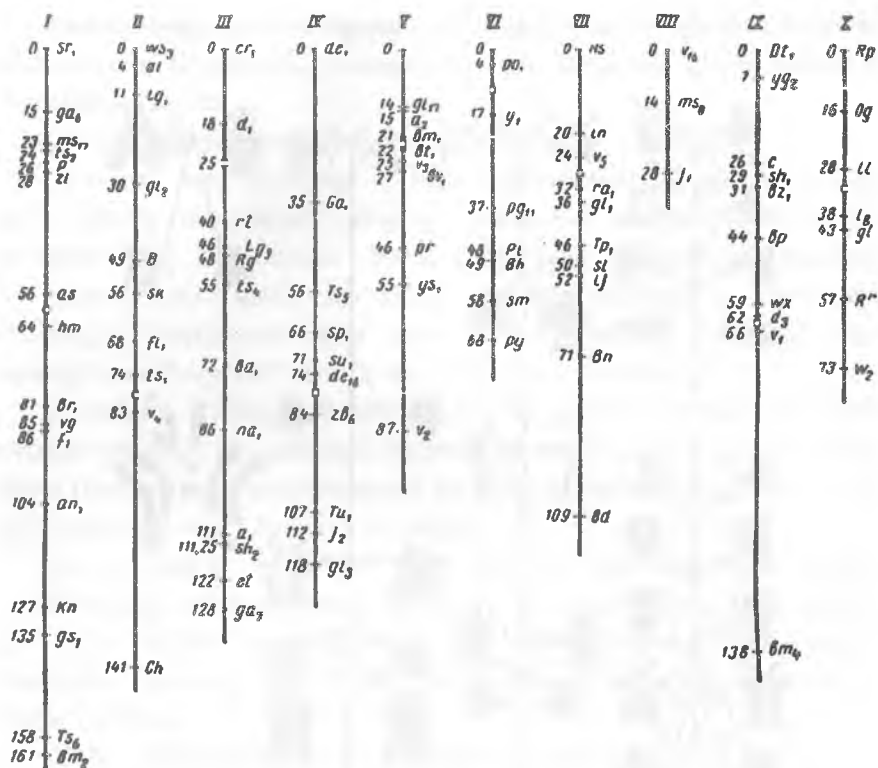 I
0 sr₁
15 ga₆
23 ms₁₇
24 ts₂
26 P
28 zl
56 as
64 hm
81 br₁
85 vg
86 f₁
104 an₁
127 Kn
135 gs₁
158 Ts₆
161 bm₂
II
0 ws₃
4 al
11 lg₁
30 gl₂
49 B
56 sk
68 fl₁
74 ts₁
83 v₄
141 Ch
III
0 cr₁
18 d₁
25
40 rt
46 Lg₃
48 Rg
55 ts₄
72 ba₁
86 na₁
111 a₁
111,25 sh₂
122 et
128 ga₇
IV
0 de₁
35 Ga₁
56 Ts₅
66 sp₁
71 su₁
74 de₁₆
84 zb₆
107 Tu₁
112 j₂
118 gl₃
V
0
14 gl₁₇
15 a₂
21 bm₁
22 bt₁
23 v₃
27 bv₁
46 pr
55 ys₁
87 v₂
VI
0
4 po₁
17 y₁
37 pg₁₁
48 Pl
49 Bh
58 sm
68 py
VII
0 Hs
20 in
24 v₅
32 ra₁
36 gl₁
46 Tp₁
50 sl
52 ij
71 Bn
109 Bd
VIII
0 v₁₆
14 ms₈
28 j₁
IX
0 Dt₁
7 yg₂
26 C
29 sh₁
31 bz₁
44 bp
59 wx
62 d₃
66 v₁
138 bm₄
X
0 Rp
16 Og
28 li
38 l₈
43 gl
57 Rʳ
73 w₂